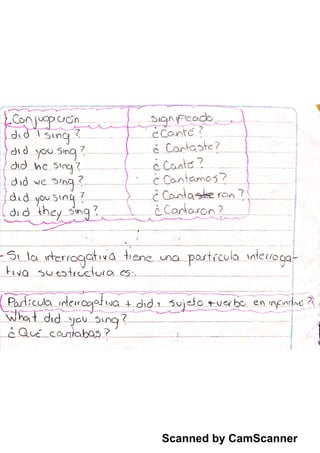 Conjugación significado
did I sing? ¿Canté?
did you sing? ¿Cantaste?
did he sing? ¿Cantó?
did we sing? ¿Cantamos?
did you sing? ¿Cantaron?
did they sing? ¿Cantaron?
- Si la interrogativa tiene una partícula interroga-
tiva su estructura es:
Partícula interrogativa + did + sujeto + verbo en infinitivo?
What did you sing?
¿Qué cantabas?
Scanned by CamScanner